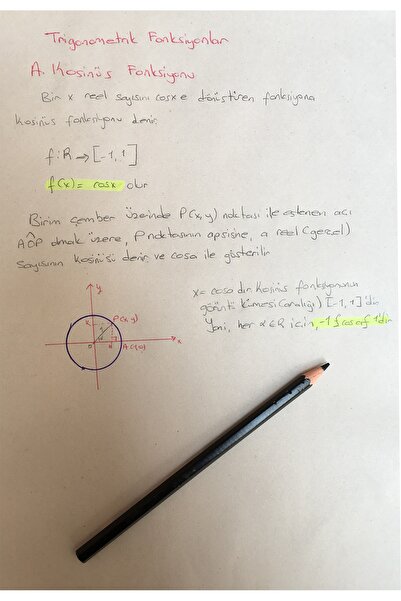 Trigonometrik Fonksiyonlar
A. Kosinüs Fonksiyonu
Bir x reel sayısını cosx e dönüştüren fonksiyona
kosinüs fonksiyonu denir.
f: R → [-1, 1]
f(x) = cosx olur
Birim çember üzerinde P(x, y) noktası ile eşlenen açı
AÔP olmak üzere, P noktasının apsisine, a reel (gerçel)
sayısının kosinüsü denir ve cosa ile gösterilir
x = cosa dır. Kosinüs fonksiyonunun
görüntü kümesi (aralığı) [-1, 1] dir
Yani, her α ∈ R için,
y
P(x, y)
x
O
A(1,0)